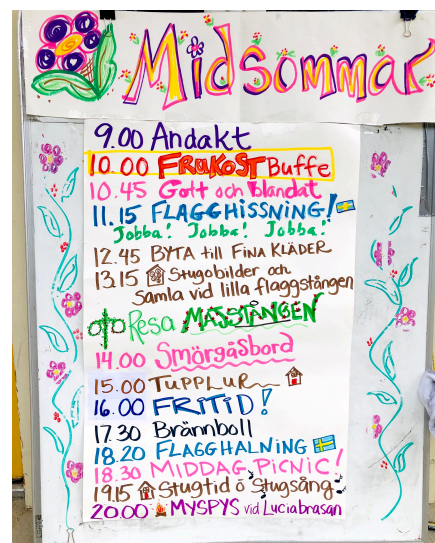 Midsommar
9.00 Andakt
10.00 FRUKOST Buffe
10.45 Gott och blandat
11.15 FLAGGHISSNING!
Jobba! Jobba! Jobba!
12.45 BYTA till FINA KLÄDER
13.15 Stugobilder och
Samla vid lilla flaggstången
Resa MAJSTÅNGEN
14.00 Smörgåsbord
15.00 TUPPLUR
16.00 FRITID!
17.30 Brännboll
18.20 FLAGGHALNING
18.30 MIDDAG PICNIC!
19.15 Stugtid ö Stugsång
20.00 MYSPYS vid Luciabrasan